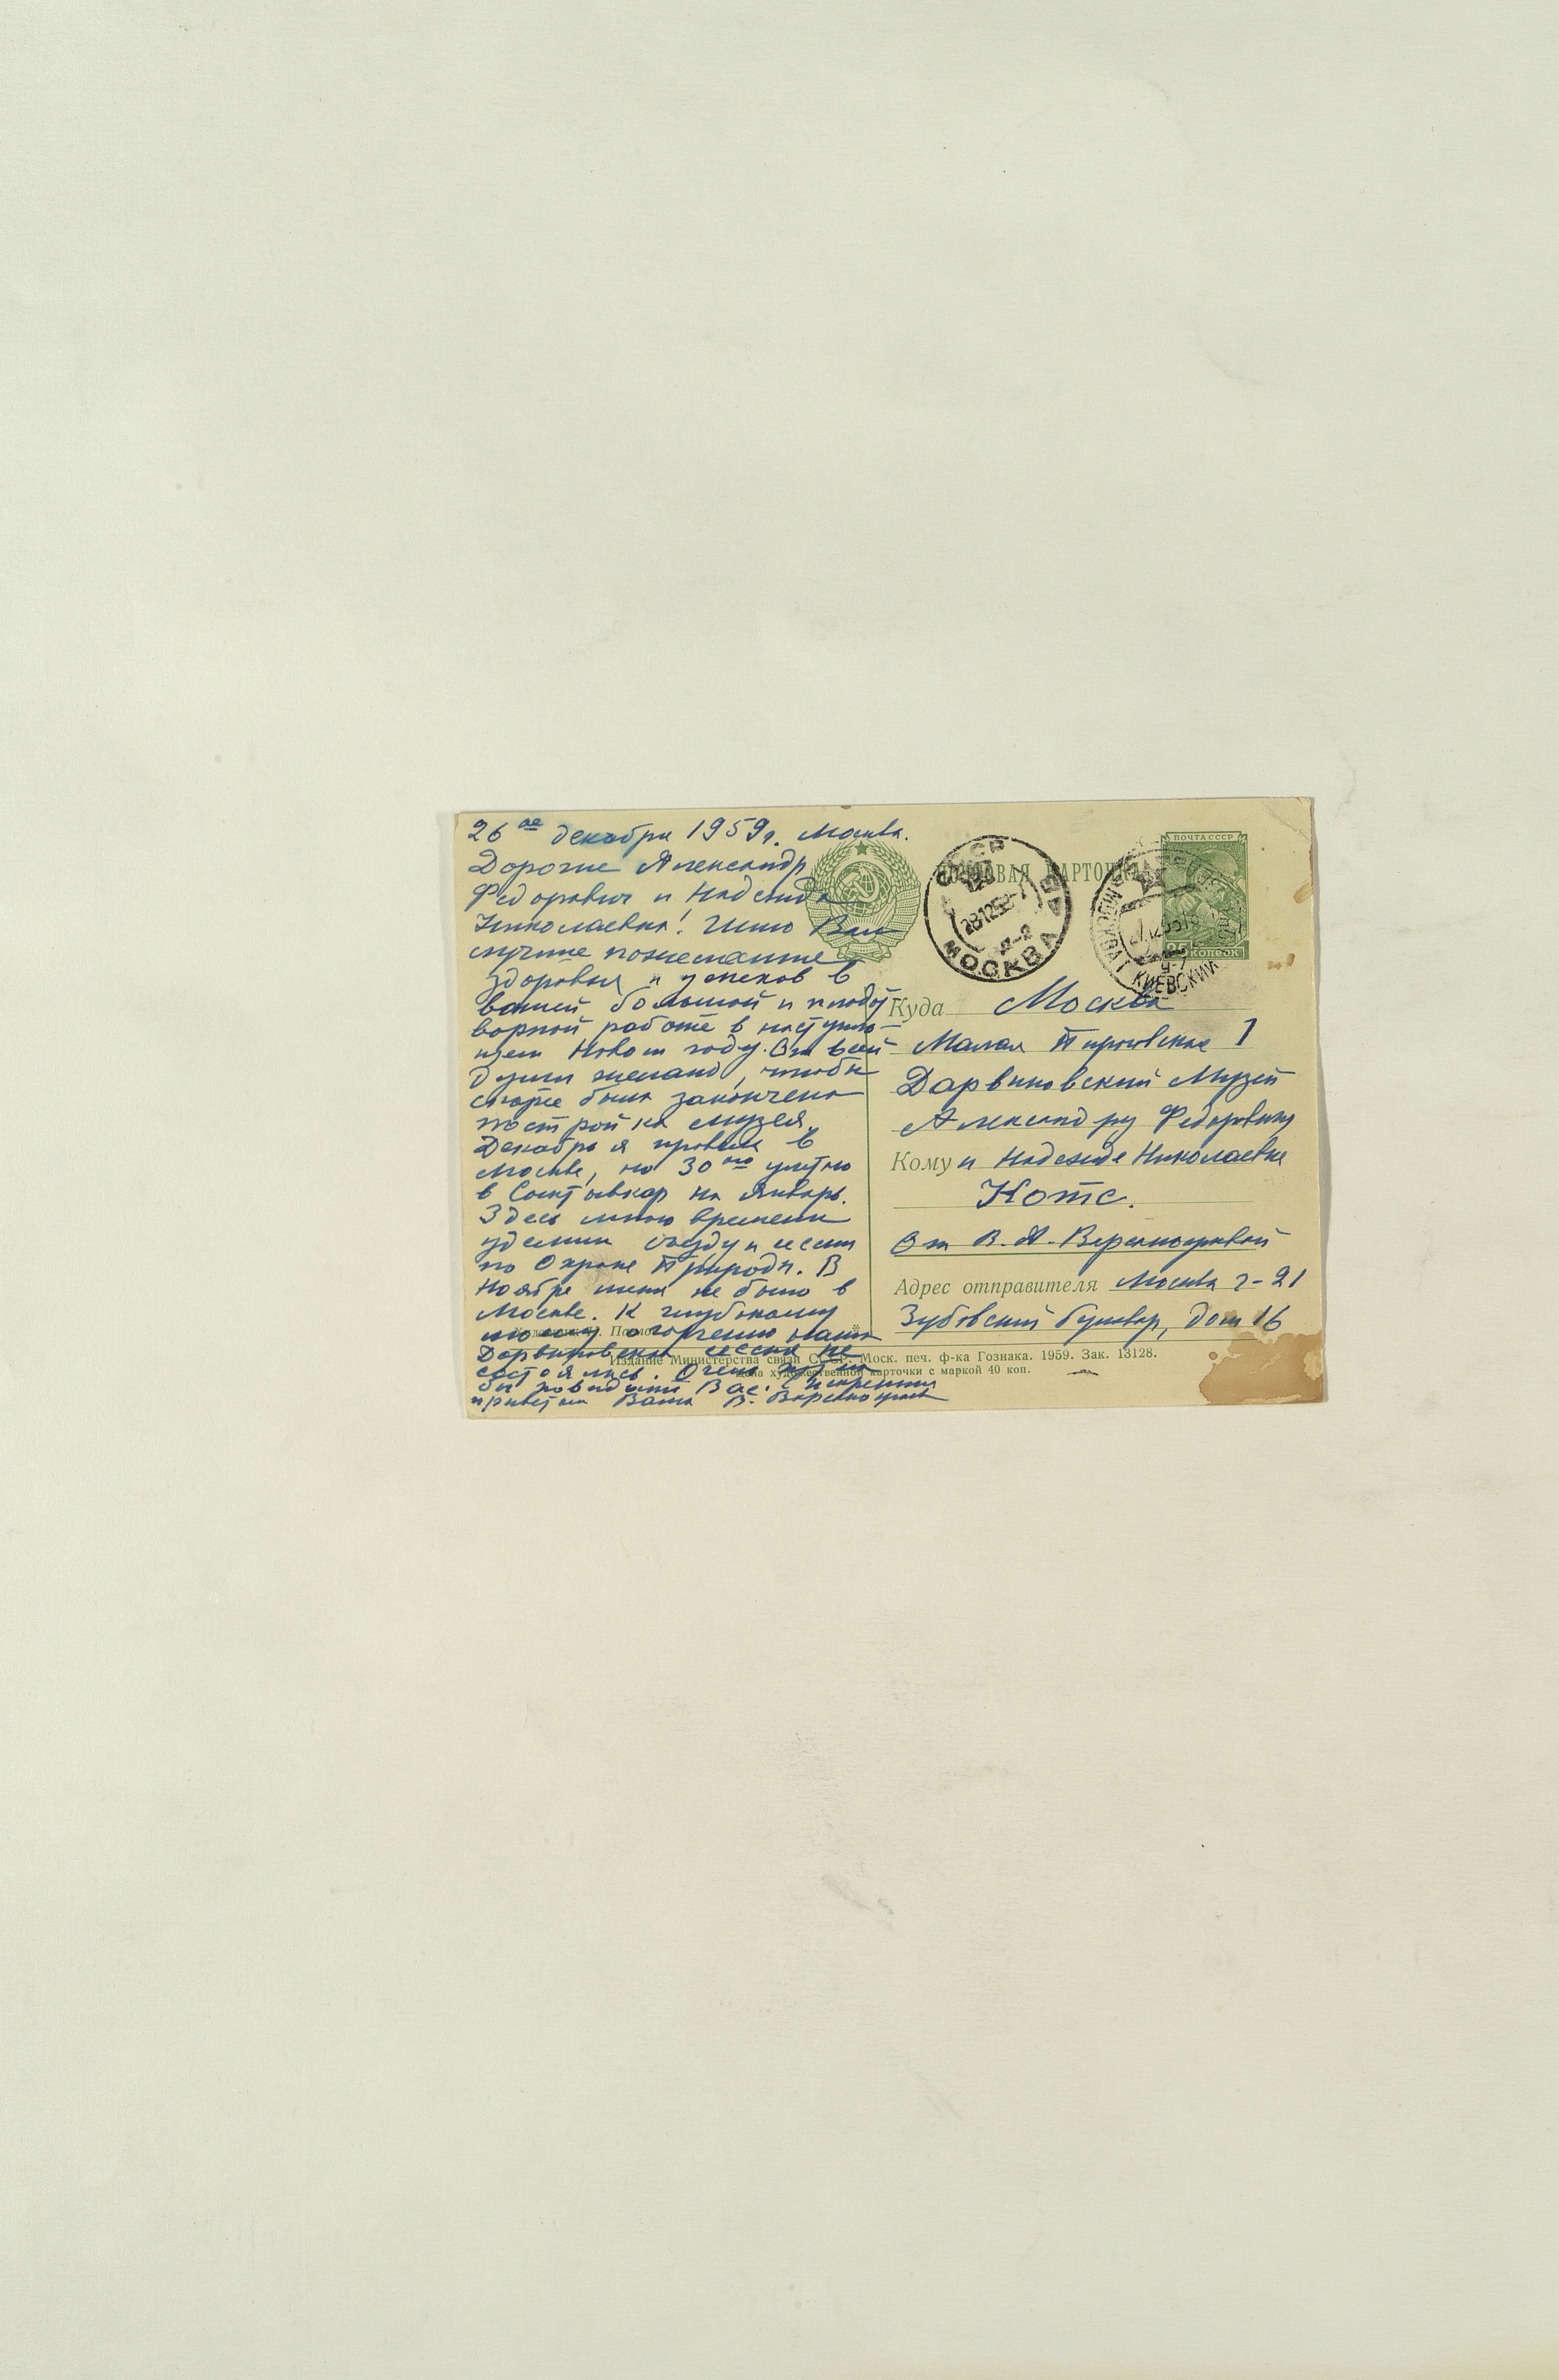 26ое декабря 1959г. Москва.
Дорогие Александр
Федорович и Надежда
Николаевна! Шлю Вам
лучшие пожелания
здоровья и успехов в
вашей большой и плодот
ворной работе в наступаю-
щем Новом году. От всей
души желаю, чтобы
скорее была закончена
постройка Музея.
Декабрь я провела в
Москве, но 30го улетаю
в Сыктывкар на Январь.
Здесь много времени
уделила съезду и сессии
по Охране Природы. В
Ноябре меня не было в
Москве. К глубокому
моему огорчению наша
Дарвиновская сессия не
состоялась. Очень
бы повидать Вас. С искренним
приветом Ваша В. Варсанофьева
ПОЧТОВАЯ КАРТОЧКА
СССР
МОСКВА
281259
МОСКВА
КИЕВСКИЙ
ПОЧТА СССР
25 КОПЕЕК
Куда Москва
Малая Пироговская 1
Дарвиновский Музей
Александру Федоровичу
Кому и Надежде Николаевне
Котс.
От В. А. Варсанофьевой
Адрес отправителя Москва г-21
Зубовский бульвар, дом 16
Издание Министерства связи СССР. Моск. печ. ф-ка Гознака. 1959. Зак. 13128.
Цена художественной карточки с маркой 40 коп.